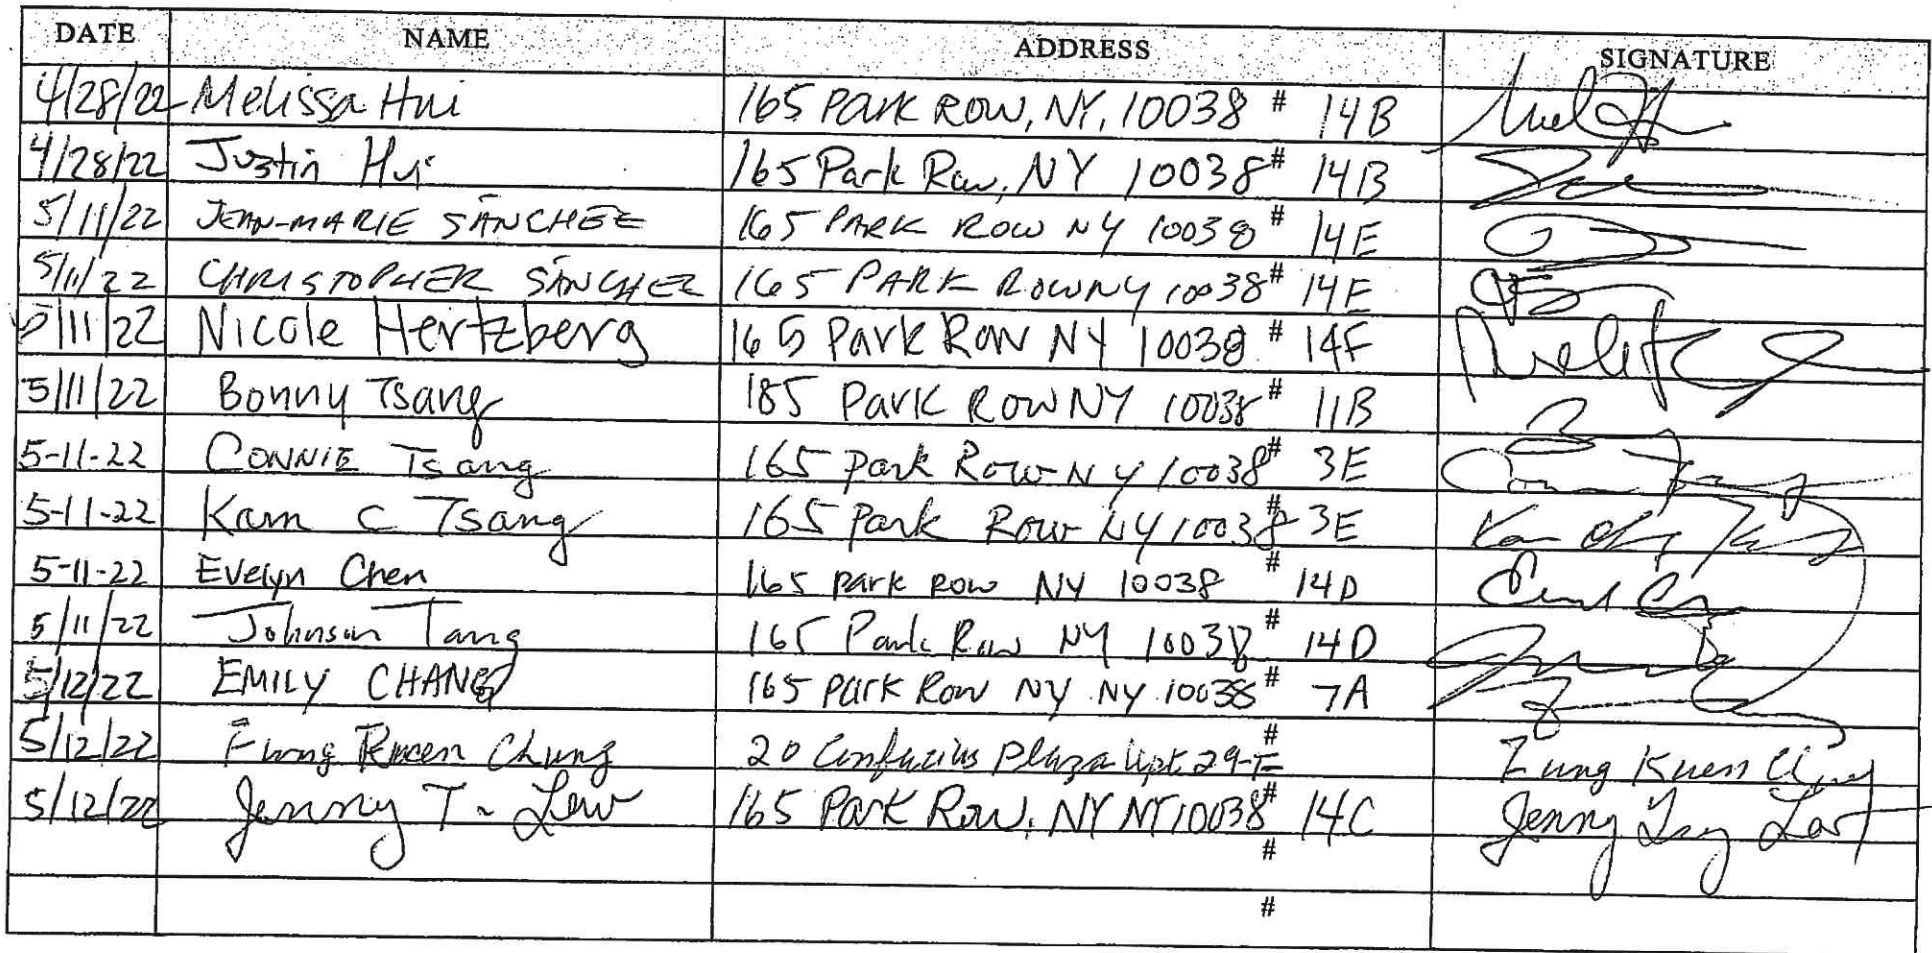 DATE NAME ADDRESS SIGNATURE
4/28/22 Melissa Hui 165 Park Row, NY, 10038 # 14B
4/28/22 Justin Hui 165 Park Row, NY 10038 # 14B
5/11/22 JEAN-MARIE SANCHEZ 165 PARK ROW NY 10038 # 14E
5/11/22 CHRISTOPHER SANCHEZ 165 PARK ROW NY 10038 # 14E
5/11/22 Nicole Hertzberg 165 Park Row NY 10038 # 14F
5/11/22 Bonny Tsang 185 Park Row NY 10038 # 11B
5-11-22 CONNIE Tsang 165 park Row NY 10038 # 3E
5-11-22 Kam C Tsang 165 Park Row NY 10038 # 3E
5-11-22 Evelyn Chen 165 park row NY 10038 # 14D
5/11/22 Johnson Tang 165 Park Row NY 10038 # 14D
5/12/22 EMILY CHANG 165 Park Row NY NY 10038 # 7A
5/12/22 Fung Chung 20 Confucius Plaza Apt. 29-F # Fung Kuen
5/12/22 Jenny T. Lew 165 Park Row, NY NY 10038 # 14C Jenny
#
#